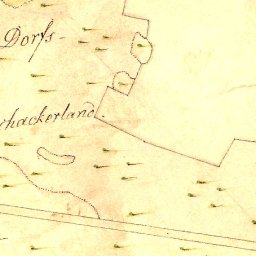 Dorfs-
hackerland.